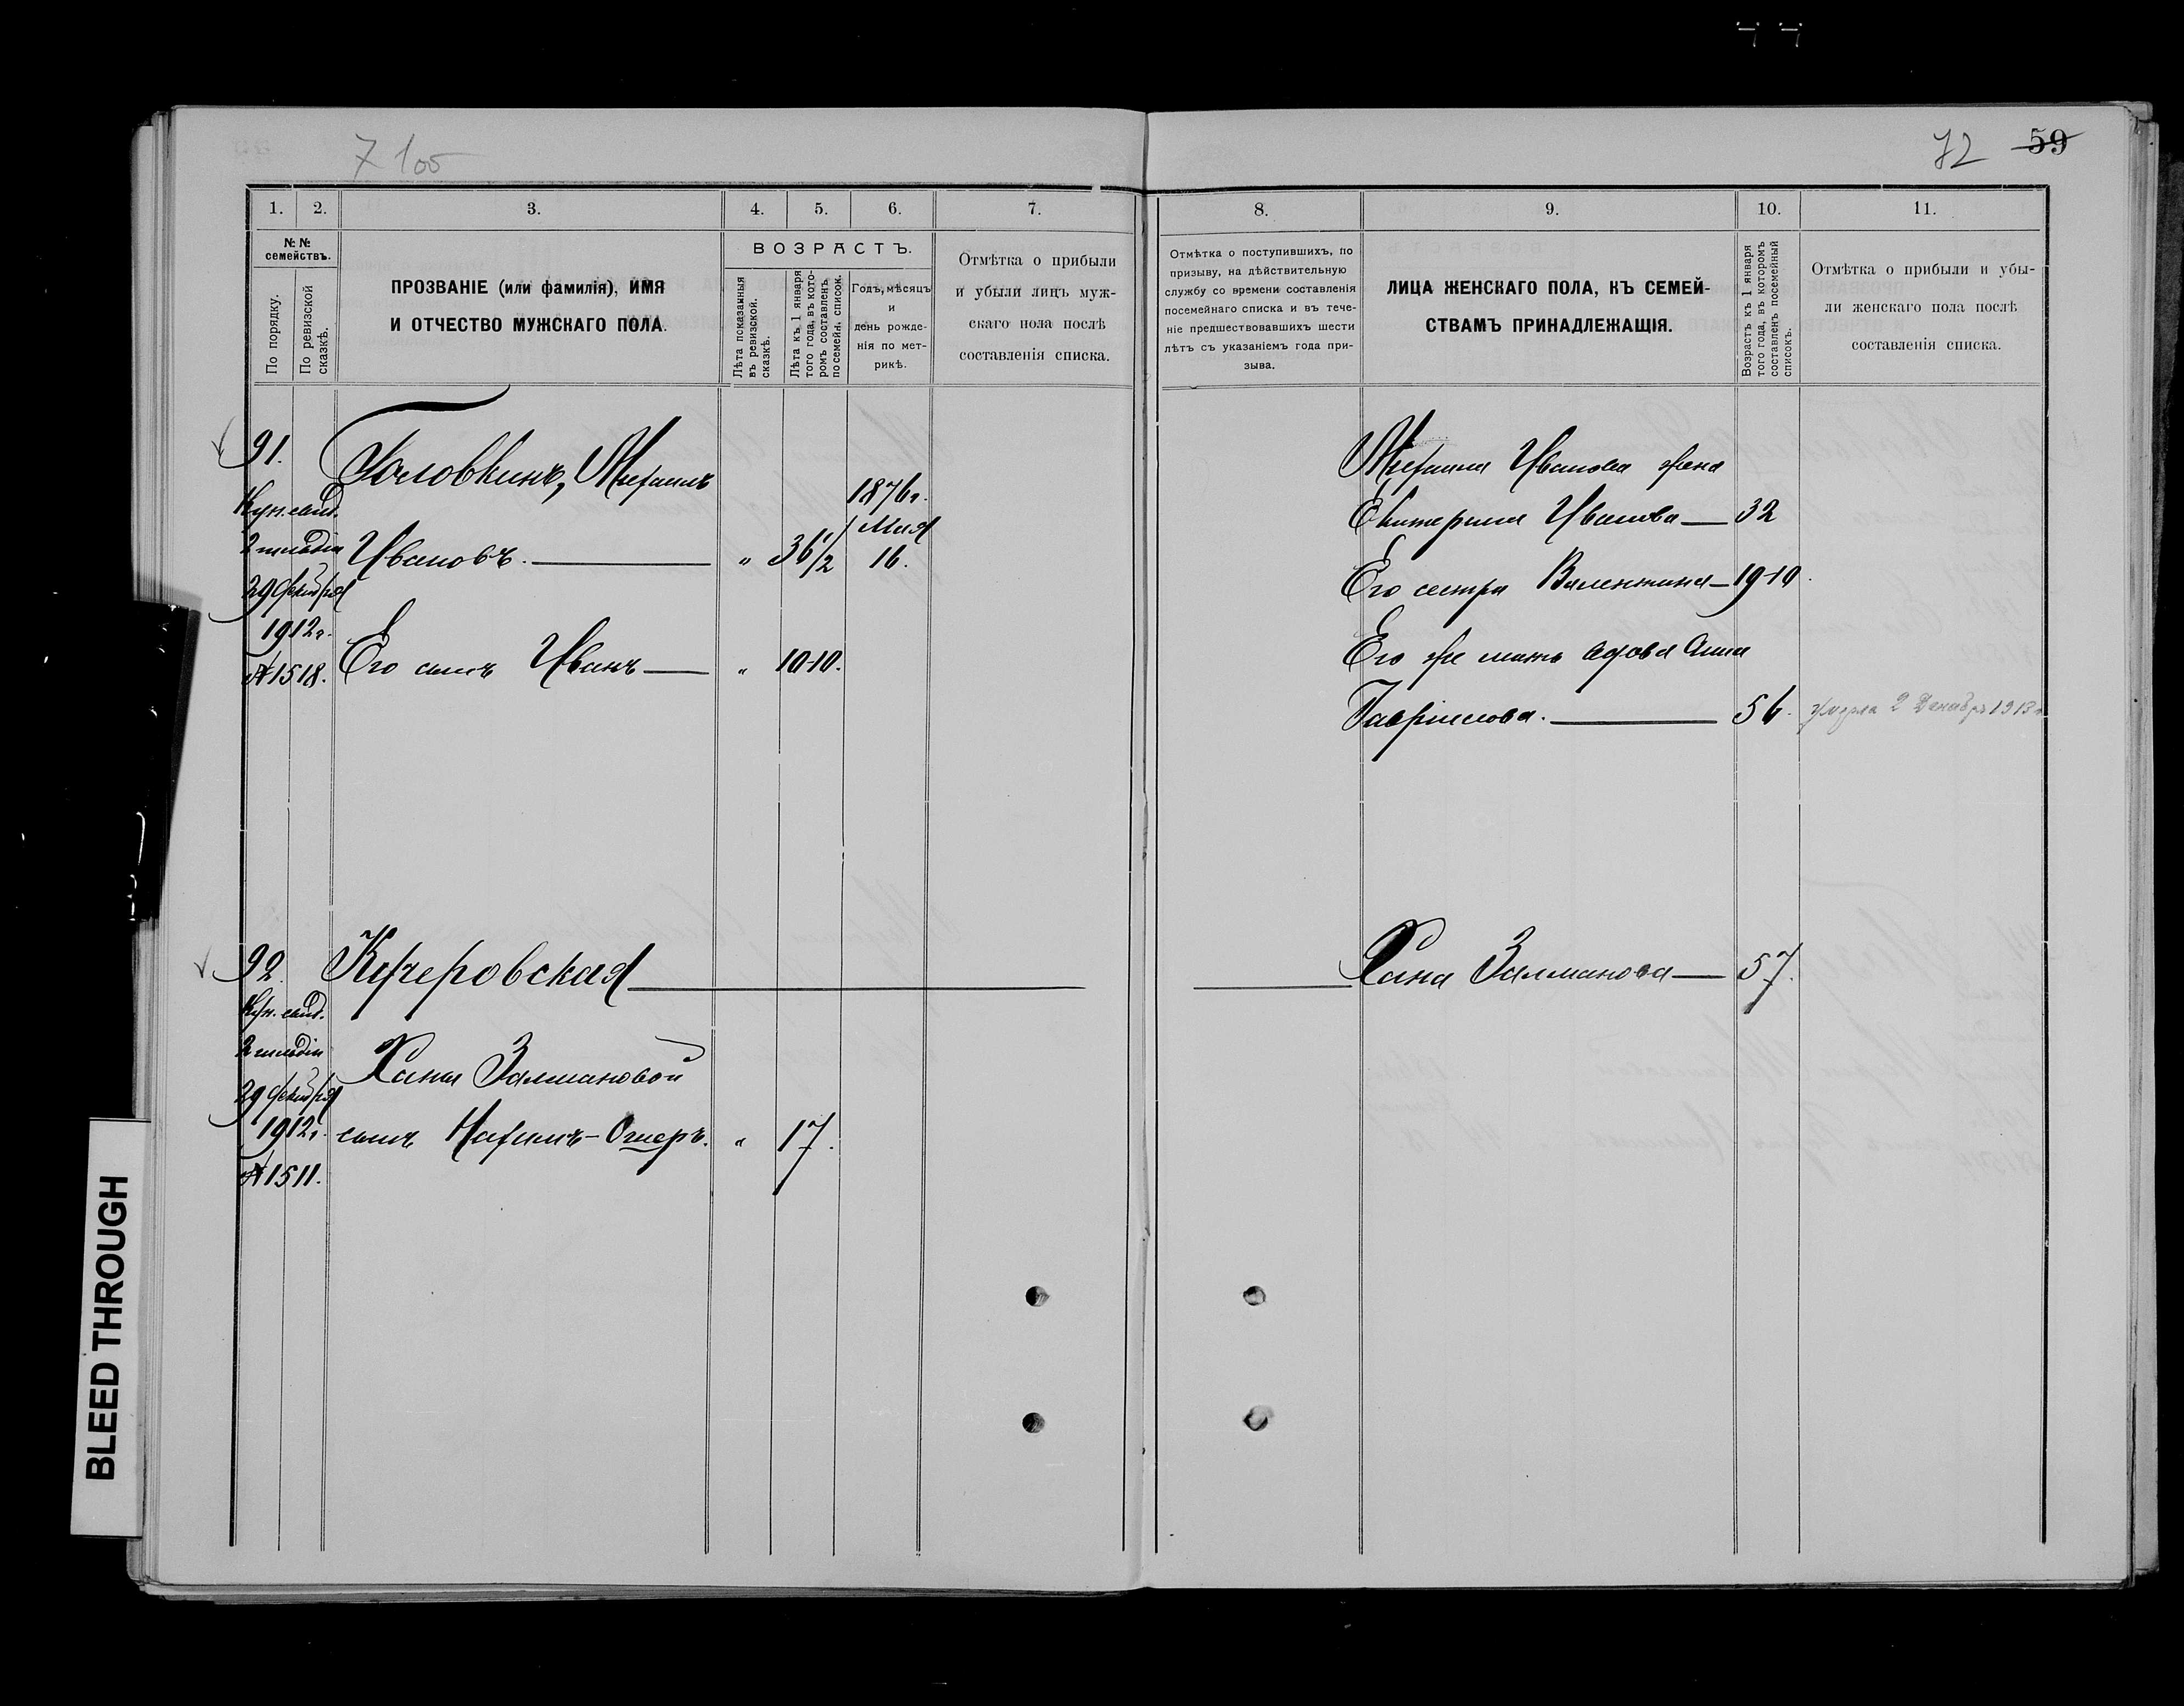 7 100
72 59
1. 2. 3. 4. 5. 6. 7.
№ № семействъ.
По порядку.
По ревизской сказкѣ.
ПРОЗВАНІЕ (или фамилія), ИМЯ
И ОТЧЕСТВО МУЖСКАГО ПОЛА.
ВОЗРАСТЪ.
Лѣта показанныя въ ревизской сказкѣ.
Лѣта къ 1 января того года, въ которомъ составленъ посемейн. список.
Годъ, мѣсяцъ
и
день рожде-
нія по мет-
рикѣ.
Отмѣтка о прибыли
и убыли лицъ муж-
скаго пола послѣ
составленія списка.
91.
Куп. свид.
2 гильдіи
29 Декабря
1912 г.
№ 1518.
Головкинъ, Михаилъ
Ивановъ. " 36 1/2 1876 г. Мая 16.
Его сынъ Иванъ " 10-10.
92.
Куп. свид.
2 гильдіи
29 Декабря
1912 г.
№ 1511.
Кучеровская
Ханы Залмановой
сынъ Нахимъ-Ошеръ. " 17.
8. 9. 10. 11.
Отмѣтка о поступившихъ, по
призыву, на дѣйствительную
службу со времени составленія
посемейнаго списка и въ тече-
ніе предшествовавшихъ шести
лѣтъ съ указаніемъ года при-
зыва.
ЛИЦА ЖЕНСКАГО ПОЛА, КЪ СЕМЕЙ-
СТВАМЪ ПРИНАДЛЕЖАЩІЯ.
Возрастъ къ 1 января того года, въ которомъ составленъ посемейный списокъ.
Отмѣтка о прибыли и убы-
ли женскаго пола послѣ
составленія списка.
Михаила Иванова жена
Екатерина Иванова — 32
Его сестра Валентина — 19-10.
Его же мать вдова Анна
Гавріилова. 56. умерла 2 Декабря 1913 г.
Хана Залманова — 57.
BLEED THROUGH